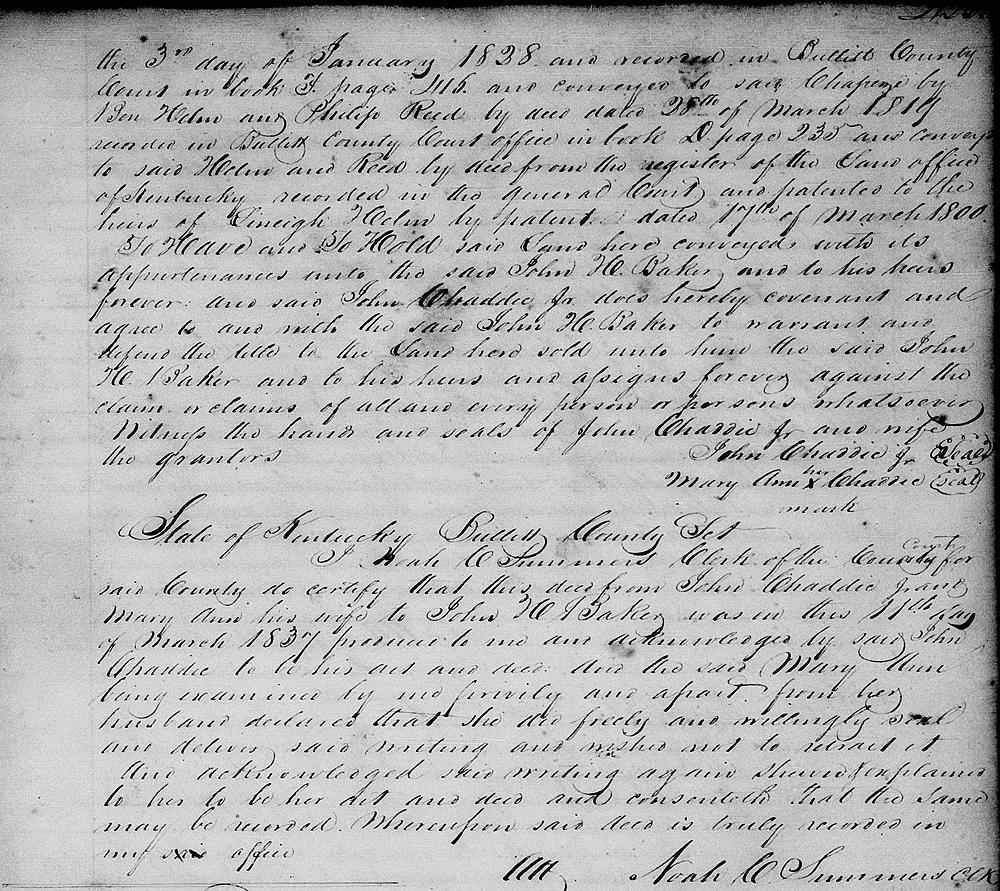 the 3rd day of January 1828 and recorded in Bullitt County
Court in book F. page 416. and conveyed to said Chapene by
Ben Helm and Philip Reed by deed dated 28th of March 1819
recorded in Bullitt County Court office in book D page 235 and conveyed
to said Helm and Reed by deed from the register of the Land office
of Kentucky recorded in the general Court and patented to the
heirs of Lineigh Helm by patent dated 17th of March 1800.
To Have and To Hold said Land here conveyed with its
appurtenances unto the said John H. Baker and to his heirs
forever: and said John Chaddic Jr does hereby covenant and
agree to and with the said John H Baker to warrant and
defend the title to the Land here sold unto him the said John
H. Baker and to his heirs and assigns forever against the
claim or claims of all and every person or persons whatsoever
Witness the hands and seals of John Chaddic Jr and wife
the grantors John Chaddic Jr Seal
Mary Ann her X Chaddic seal
mark
State of Kentucky Bullitt County Set
I Noah C Summers Clerk of the County Court for
said County do certify that this deed from John Chaddic Jr and
Mary Ann his wife to John H Baker was on this 11th day
of March 1837 produced to me and acknowledged by said John
Chaddic to be his act and deed: And the said Mary Ann
being examined by me privily and apart from her
husband declared that she did freely and willingly seal
and deliver said writing and wished not to retract it
And acknowledged said writing again shewed & explained
to her to be her act and deed and consenteth that the same
may be recorded. Whereupon said deed is truly recorded in
my said office
Att Noah C. Summers Clk